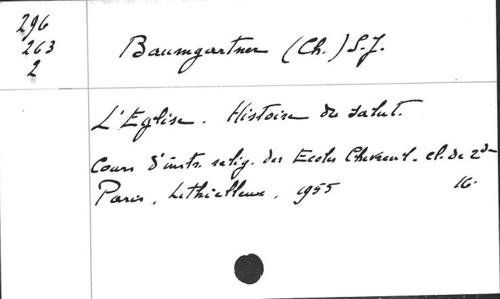 296
263
2
Baumgartner (Ch.) S.J.
L'Eglise. Histoire du salut.
Cours d'instr. relig. des Ecoles Chevreul. cl. de 2de
Paris, Lethielleux, 1955 16.